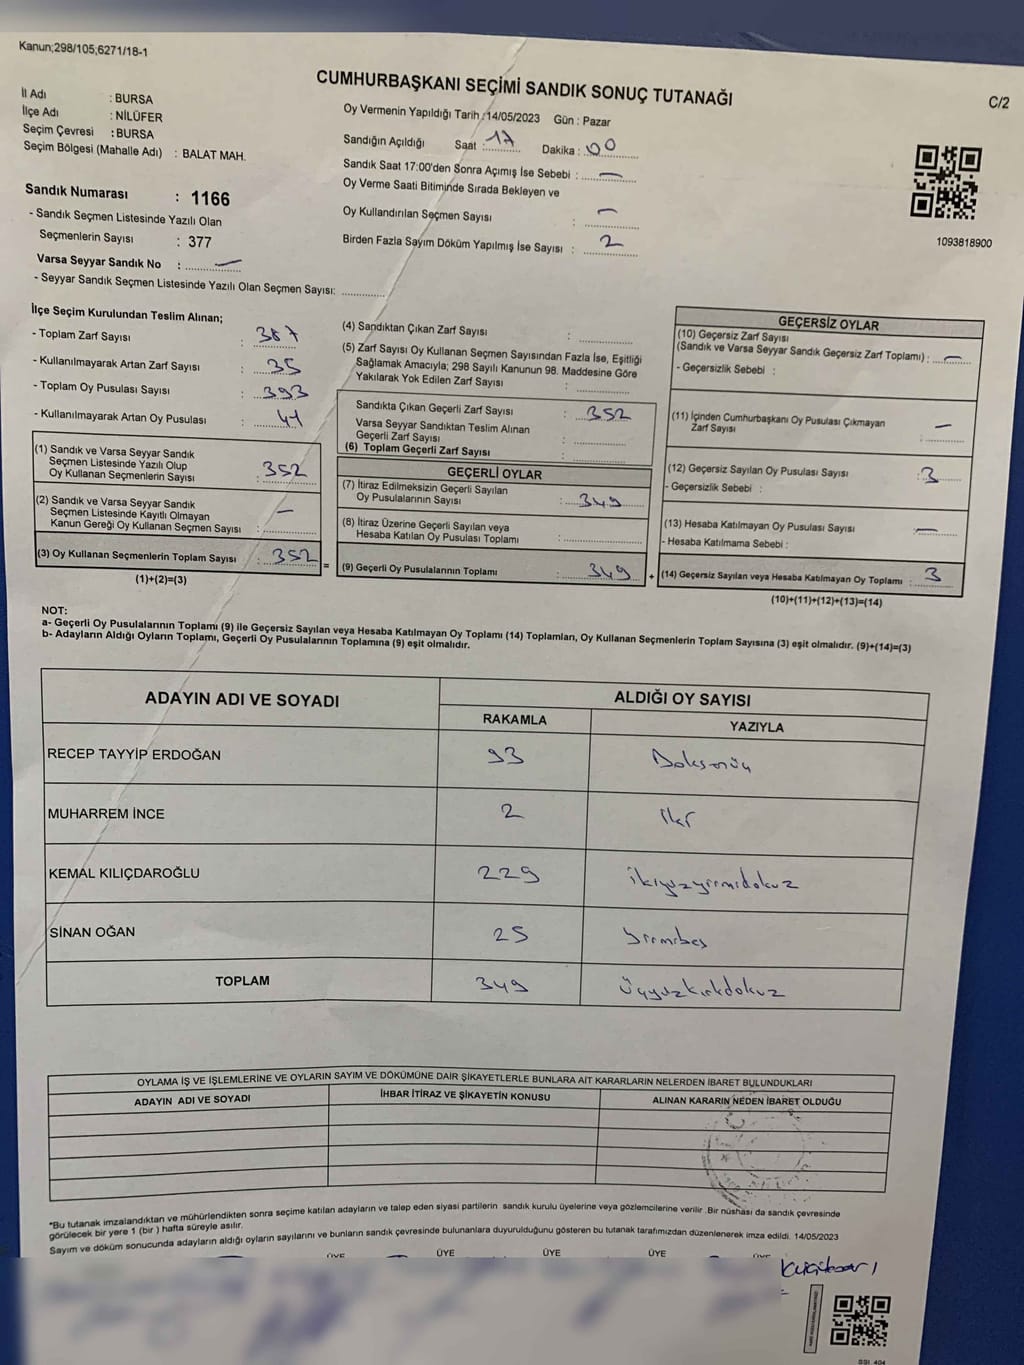 Kanun;298/105;6271/18-1
CUMHURBAŞKANI SEÇİMİ SANDIK SONUÇ TUTANAĞI
C/2
İl Adı : BURSA
İlçe Adı : NİLÜFER
Seçim Çevresi : BURSA
Seçim Bölgesi (Mahalle Adı) : BALAT MAH.
Oy Vermenin Yapıldığı Tarih :14/05/2023 Gün : Pazar
Sandığın Açıldığı Saat : 17 Dakika : 00
Sandık Saat 17:00'den Sonra Açımış İse Sebebi : —
Oy Verme Saati Bitiminde Sırada Bekleyen ve
Oy Kullandırılan Seçmen Sayısı : —
Birden Fazla Sayım Döküm Yapılmış İse Sayısı : 2
1093818900
Sandık Numarası : 1166
- Sandık Seçmen Listesinde Yazılı Olan
Seçmenlerin Sayısı : 377
Varsa Seyyar Sandık No : —
- Seyyar Sandık Seçmen Listesinde Yazılı Olan Seçmen Sayısı:
İlçe Seçim Kurulundan Teslim Alınan;
- Toplam Zarf Sayısı : 387
- Kullanılmayarak Artan Zarf Sayısı : 35
- Toplam Oy Pusulası Sayısı : 393
- Kullanılmayarak Artan Oy Pusulası : 41
(1) Sandık ve Varsa Seyyar Sandık
Seçmen Listesinde Yazılı Olup
Oy Kullanan Seçmenlerin Sayısı : 352
(2) Sandık ve Varsa Seyyar Sandık
Seçmen Listesinde Kayıtlı Olmayan
Kanun Gereği Oy Kullanan Seçmen Sayısı : —
(3) Oy Kullanan Seçmenlerin Toplam Sayısı : 352 =
(1)+(2)=(3)
(4) Sandıktan Çıkan Zarf Sayısı :
(5) Zarf Sayısı Oy Kullanan Seçmen Sayısından Fazla İse, Eşitliği
Sağlamak Amacıyla; 298 Sayılı Kanunun 98. Maddesine Göre
Yakılarak Yok Edilen Zarf Sayısı :
Sandıkta Çıkan Geçerli Zarf Sayısı : 352
Varsa Seyyar Sandıktan Teslim Alınan
Geçerli Zarf Sayısı :
(6) Toplam Geçerli Zarf Sayısı :
GEÇERLİ OYLAR
(7) İtiraz Edilmeksizin Geçerli Sayılan
Oy Pusulalarının Sayısı : 349
(8) İtiraz Üzerine Geçerli Sayılan veya
Hesaba Katılan Oy Pusulası Toplamı :
(9) Geçerli Oy Pusulalarının Toplamı : 349 +
GEÇERSİZ OYLAR
(10) Geçersiz Zarf Sayısı
(Sandık ve Varsa Seyyar Sandık Geçersiz Zarf Toplamı) : —
- Geçersizlik Sebebi :
(11) İçinden Cumhurbaşkanı Oy Pusulası Çıkmayan
Zarf Sayısı : —
(12) Geçersiz Sayılan Oy Pusulası Sayısı : 3
- Geçersizlik Sebebi :
(13) Hesaba Katılmayan Oy Pusulası Sayısı : —
- Hesaba Katılmama Sebebi :
(14) Geçersiz Sayılan veya Hesaba Katılmayan Oy Toplamı : 3
(10)+(11)+(12)+(13)=(14)
NOT:
a- Geçerli Oy Pusulalarının Toplamı (9) ile Geçersiz Sayılan veya Hesaba Katılmayan Oy Toplamı (14) Toplamları, Oy Kullanan Seçmenlerin Toplam Sayısına (3) eşit olmalıdır. (9)+(14)=(3)
b- Adayların Aldığı Oyların Toplamı, Geçerli Oy Pusulalarının Toplamına (9) eşit olmalıdır.
ADAYIN ADI VE SOYADI ALDIĞI OY SAYISI
RAKAMLA YAZIYLA
RECEP TAYYİP ERDOĞAN 93 Doksanüç
MUHARREM İNCE 2 iki
KEMAL KILIÇDAROĞLU 229 ikiyüzyirmidokuz
SİNAN OĞAN 25 yirmibeş
TOPLAM 349 Üçyüzkırkdokuz
OYLAMA İŞ VE İŞLEMLERİNE VE OYLARIN SAYIM VE DÖKÜMÜNE DAİR ŞİKAYETLERLE BUNLARA AİT KARARLARIN NELERDEN İBARET BULUNDUKLARI
ADAYIN ADI VE SOYADI İHBAR İTİRAZ VE ŞİKAYETİN KONUSU ALINAN KARARIN NEDEN İBARET OLDUĞU
*Bu tutanak imzalandıktan ve mühürlendikten sonra seçime katılan adayların ve talep eden siyasi partilerin sandık kurulu üyelerine veya gözlemcilerine verilir .Bir nüshası da sandık çevresinde
görülecek bir yere 1 (bir ) hafta süreyle asılır.
Sayım ve döküm sonucunda adayların aldığı oyların sayılarını ve bunların sandık çevresinde bulunanlara duyurulduğunu gösteren bu tutanak tarafımızdan düzenlenerek imza edildi. 14/05/2023
ÜYE ÜYE ÜYE ÜYE ÜYE